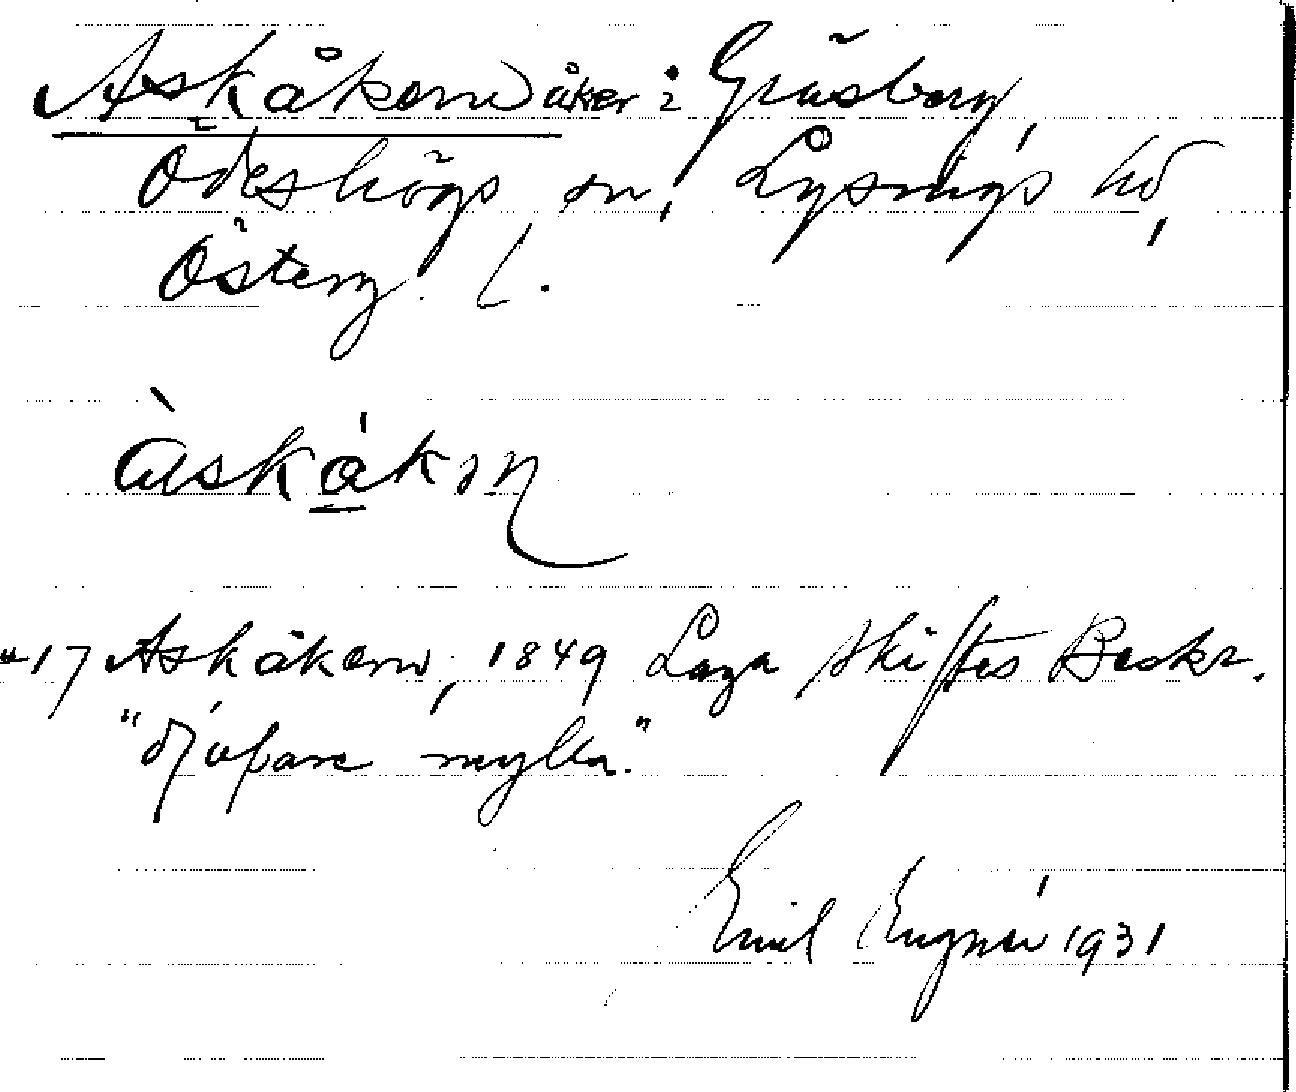 Askåkern åker i Gräsberg,
Ödeshögs sn, Lysings hd,
Österg. l.
àskákın
417 Askåkern, 1849 Laga skiftes Beskr.
"djupare mylla."
Emil 1931